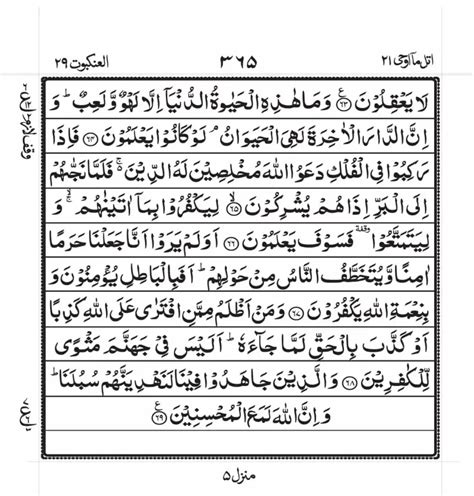 اتل ماۤ اوحی ٢١ ٣٦٥ العنکبوت ٢٩
لَا يَعْقِلُوْنَ ۝٦٣ وَمَا هٰذِهِ الْحَيٰوةُ الدُّنْيَاۤ اِلَّا لَهْوٌ وَّلَعِبٌ ؕ وَ
اِنَّ الدَّارَ الْاٰخِرَةَ لَهِيَ الْحَيَوَانُ ۘ لَوْ كَانُوْا يَعْلَمُوْنَ ۝٦٤ فَاِذَا
رَكِبُوْا فِي الْفُلْكِ دَعَوُا اللّٰهَ مُخْلِصِيْنَ لَهُ الدِّيْنَ ۚ۬ فَلَمَّا نَجّٰىهُمْ
اِلَى الْبَرِّ اِذَا هُمْ يُشْرِكُوْنَ ۝٦٥ۙ لِيَكْفُرُوْا بِمَاۤ اٰتَيْنٰهُمْ ۚۙ وَ
لِيَتَمَتَّعُوْا ۥ وقفة فَسَوْفَ يَعْلَمُوْنَ ۝٦٦ اَوَلَمْ يَرَوْا اَنَّا جَعَلْنَا حَرَمًا
اٰمِنًا وَّيُتَخَطَّفُ النَّاسُ مِنْ حَوْلِهِمْ ؕ اَفَبِالْبَاطِلِ يُؤْمِنُوْنَ وَ
بِنِعْمَةِ اللّٰهِ يَكْفُرُوْنَ ۝٦٧ وَمَنْ اَظْلَمُ مِمَّنِ افْتَرٰى عَلَى اللّٰهِ كَذِبًا
اَوْ كَذَّبَ بِالْحَقِّ لَمَّا جَآءَهٗ ؕ اَلَيْسَ فِيْ جَهَنَّمَ مَثْوًى
لِّلْكٰفِرِيْنَ ۝٦٨ وَالَّذِيْنَ جَاهَدُوْا فِيْنَا لَنَهْدِيَنَّهُمْ سُبُلَنَا ؕ
وَاِنَّ اللّٰهَ لَمَعَ الْمُحْسِنِيْنَ ۝٦٩ ع
منزل ٥